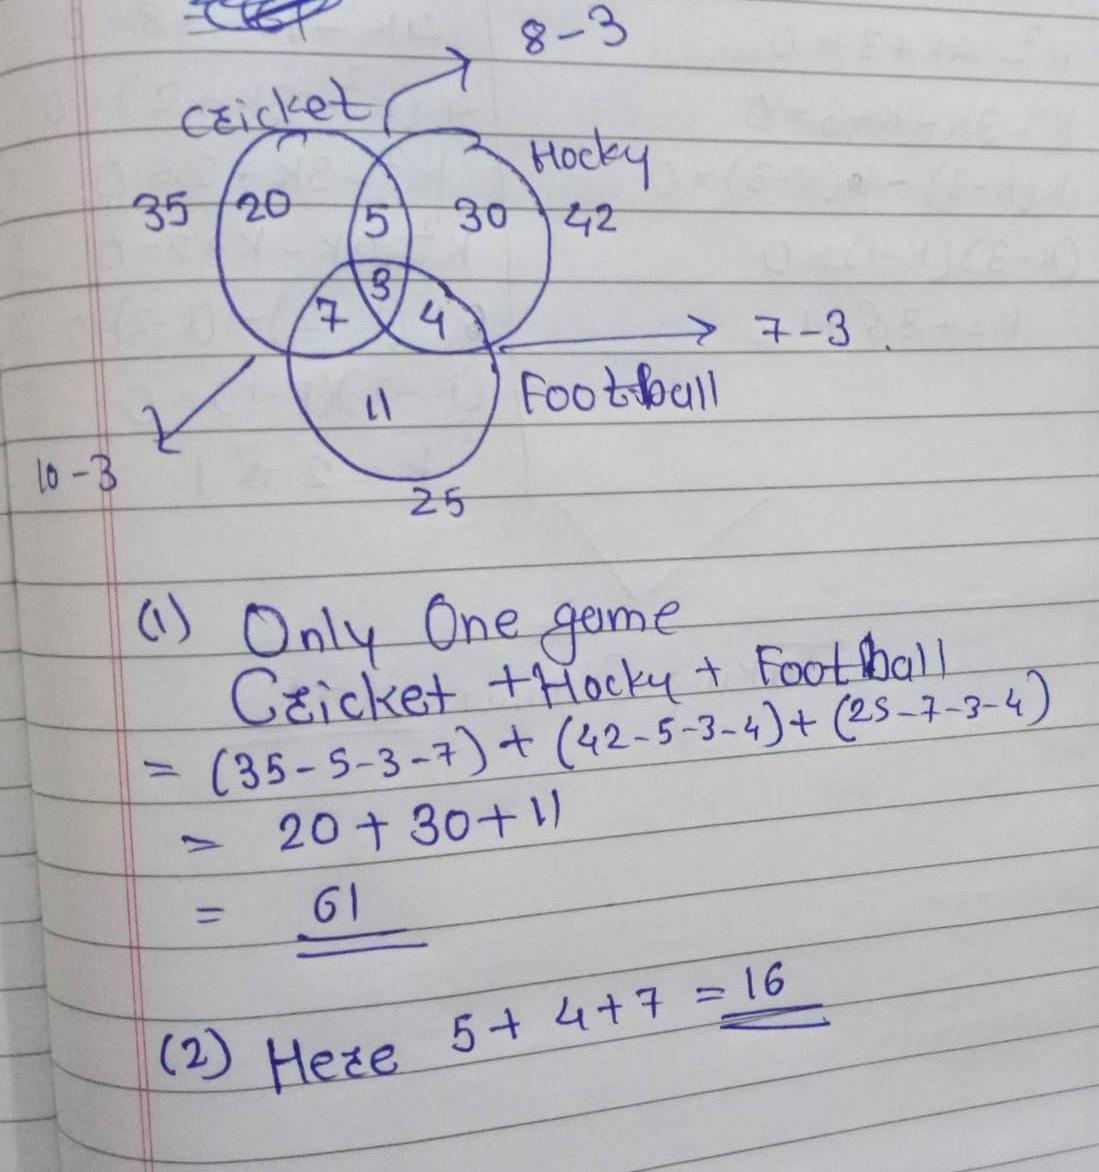 8-3
Cricket
Hocky
35 20 5 30 42
3
7 4
7-3.
Football
11
10-3
25
(1) Only One game
Cricket + Hocky + Football
= (35-5-3-7) + (42-5-3-4) + (25-7-3-4)
= 20 + 30 + 11
= 61
(2) Here 5 + 4 + 7 = 16